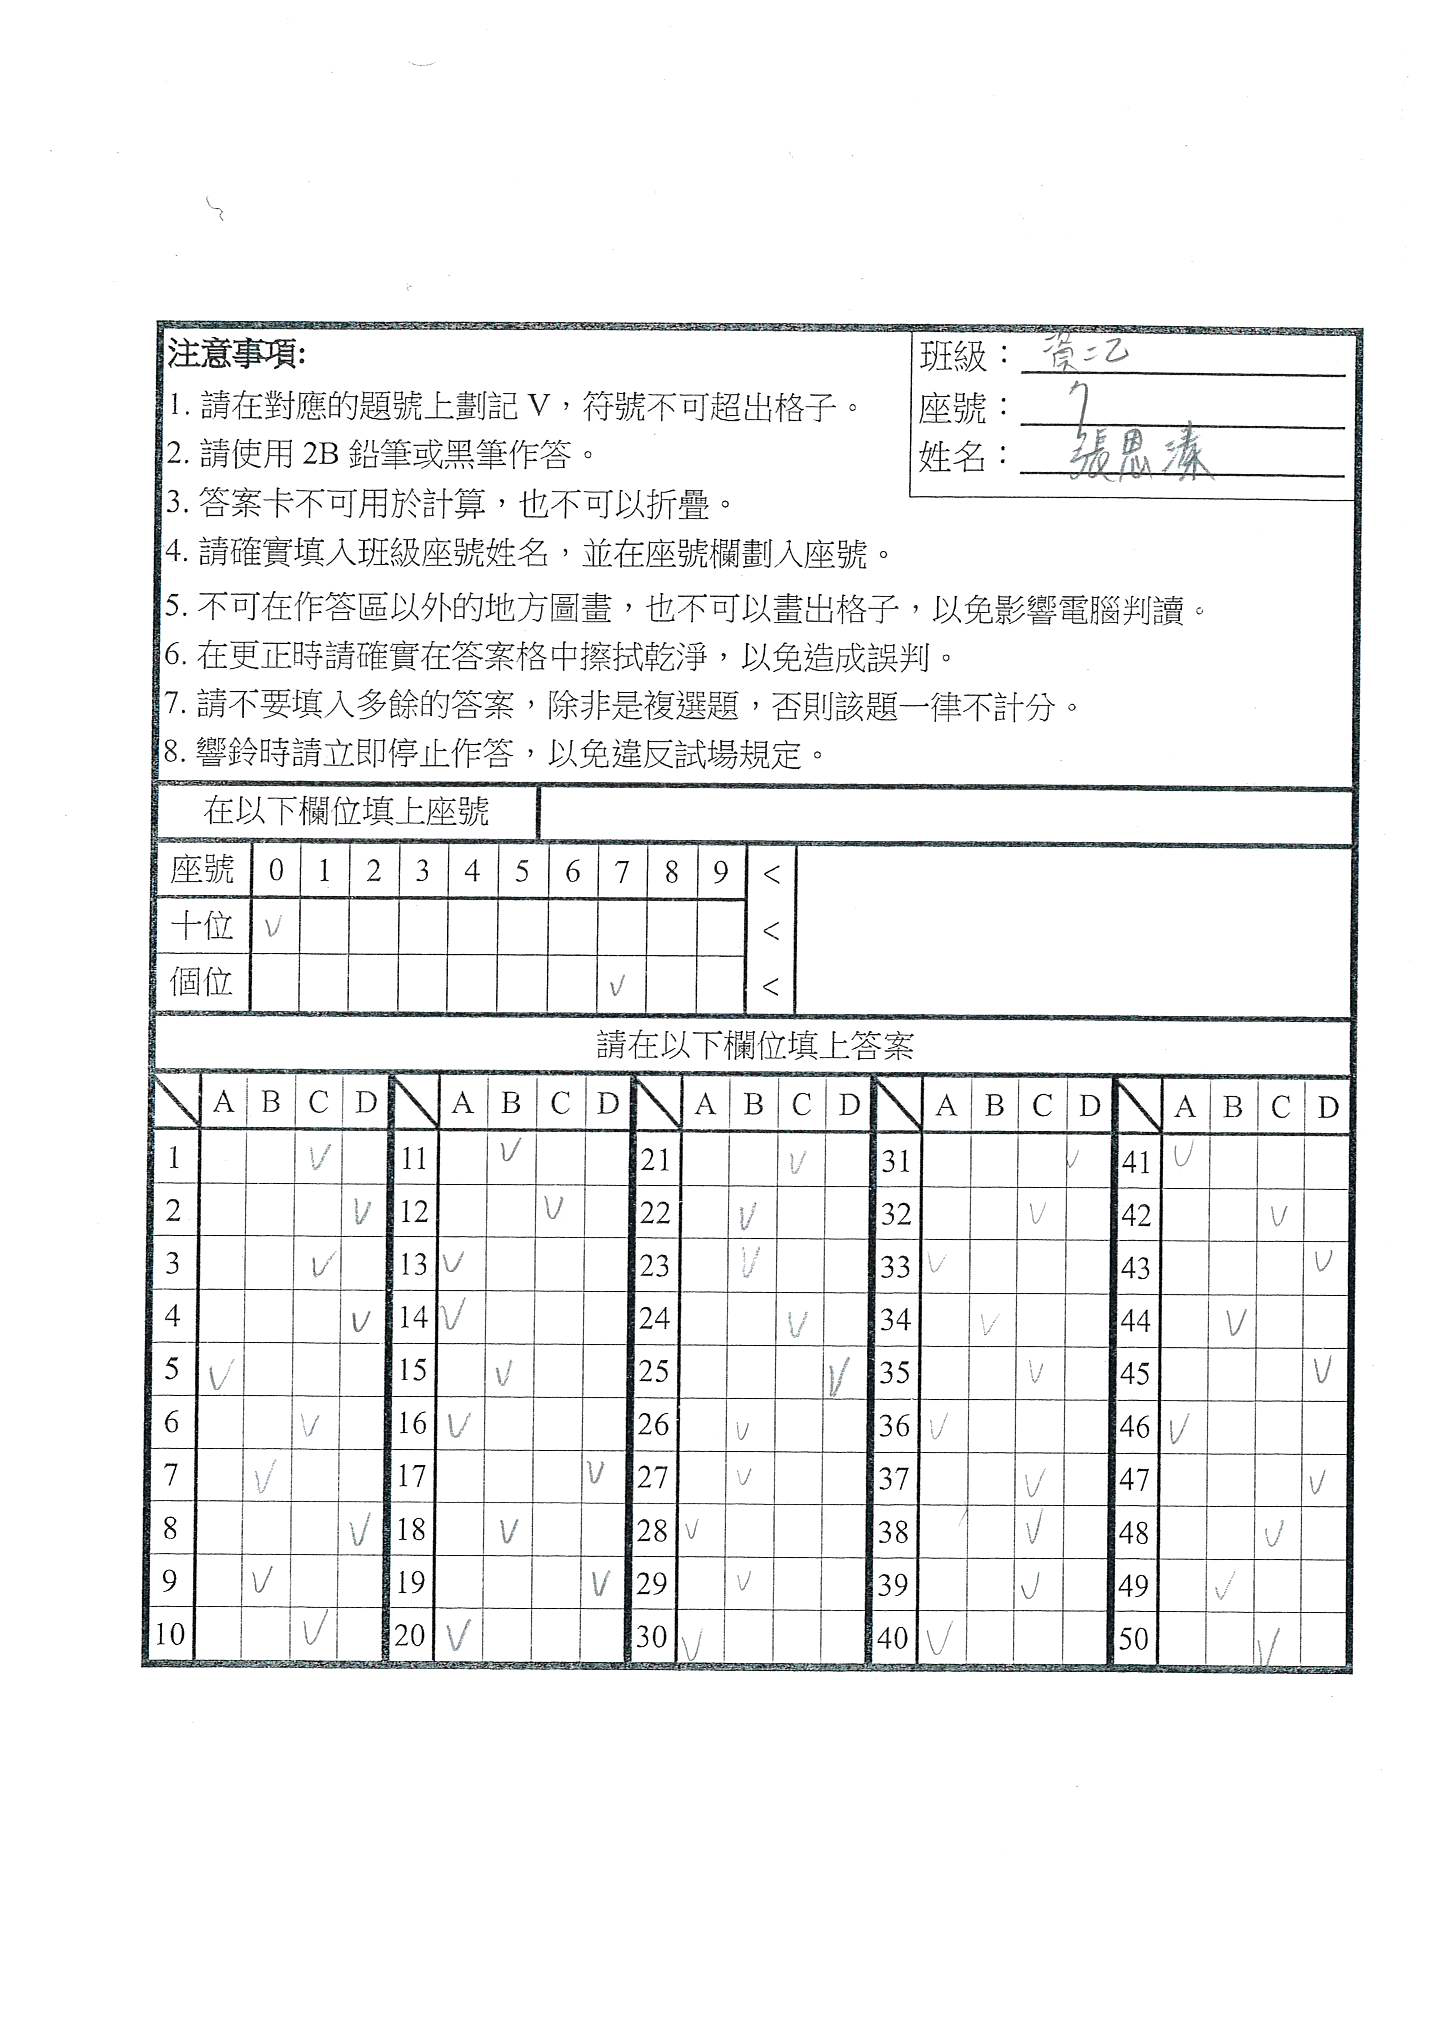 注意事項:
1. 請在對應的題號上劃記 V，符號不可超出格子。
2. 請使用 2B 鉛筆或黑筆作答。
3. 答案卡不可用於計算，也不可以折疊。
4. 請確實填入班級座號姓名，並在座號欄劃入座號。
5. 不可在作答區以外的地方圖畫，也不可以畫出格子，以免影響電腦判讀。
6. 在更正時請確實在答案格中擦拭乾淨，以免造成誤判。
7. 請不要填入多餘的答案，除非是複選題，否則該題一律不計分。
8. 響鈴時請立即停止作答，以免違反試場規定。
班級：資二乙
座號：7
姓名：張思溱
在以下欄位填上座號
座號 0 1 2 3 4 5 6 7 8 9 <
十位 V <
個位 V <
請在以下欄位填上答案
A B C D A B C D A B C D A B C D A B C D
1 V 11 V 21 V 31 V 41 V
2 V 12 V 22 V 32 V 42 V
3 V 13 V 23 V 33 V 43 V
4 V 14 V 24 V 34 V 44 V
5 V 15 V 25 V 35 V 45 V
6 V 16 V 26 V 36 V 46 V
7 V 17 V 27 V 37 V 47 V
8 V 18 V 28 V 38 V 48 V
9 V 19 V 29 V 39 V 49 V
10 V 20 V 30 V 40 V 50 V